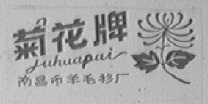 菊花牌
Juhuapai
南昌市羊毛衫厂